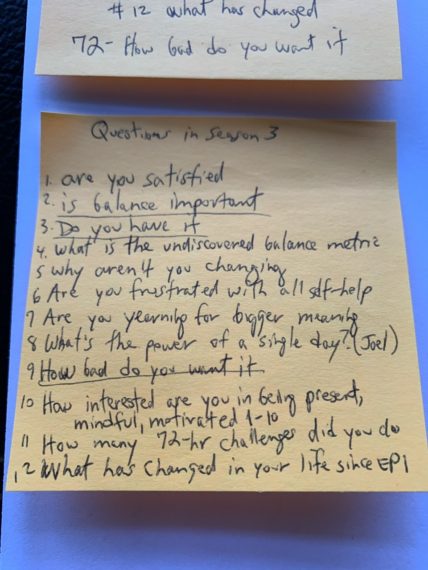 #12 what has changed
72- How bad do you want it
Questions in Season 3
1. are you satisfied
2. is balance important
3. Do you have it
4. what is the undiscovered balance metric
5 why aren't you changing
6 Are you frustrated with all self-help
7 Are you yearning for bigger meaning
8 What's the power of a single day? (Joel)
9 How bad do you want it
10 How interested are you in being present,
mindful, motivated 1-10
11 How many 72-hr challenges did you do
12 What has changed in your life since EP1